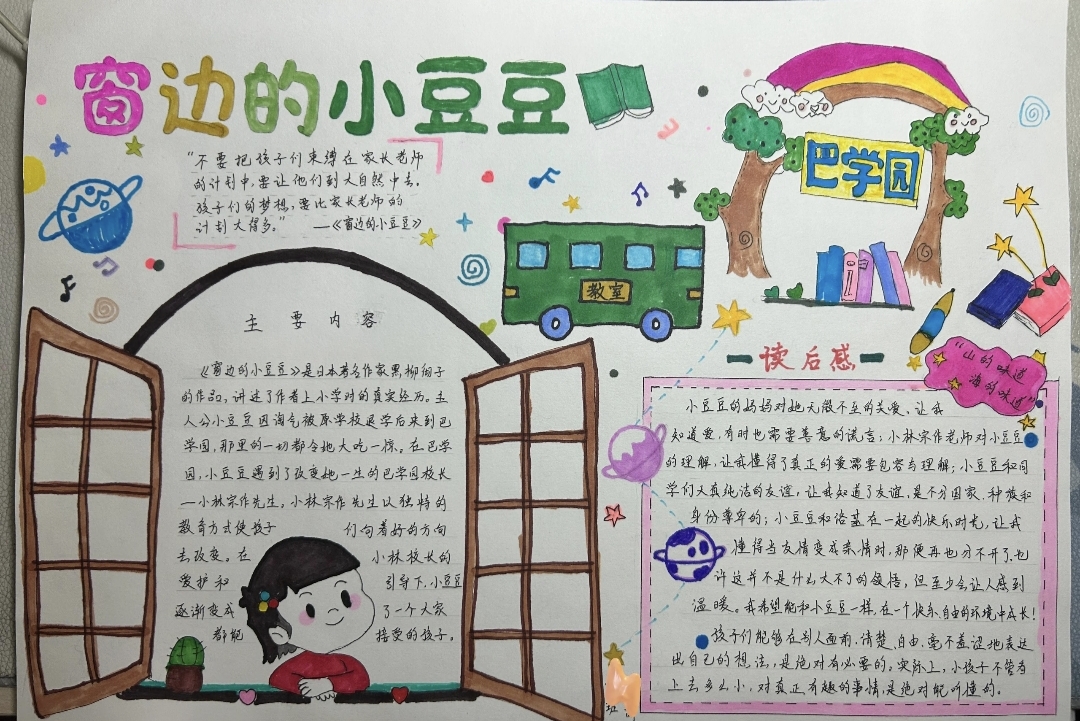 窗边的小豆豆
"不要把孩子们束缚在家长老师
的计划中,要让他们到大自然中去。
孩子们的梦想,要比家长老师的
计划大得多。" —《窗边的小豆豆》
巴学园
教室
主要内容
《窗边的小豆豆》是日本著名作家黑柳彻子
的作品,讲述了作者上小学时的真实经历。主
人公小豆豆因淘气被原学校退学后来到巴
学园,那里的一切都令她大吃一惊。在巴学
园,小豆豆遇到了改变她一生的巴学园校长
—小林宗作先生。小林宗作先生以独特的
教育方式使孩子们向着好的方向
去改变。在小林校长的
爱护和引导下,小豆豆
逐渐变成了一个大家
都能接受的孩子。
读后感
"山的味道
海的味道"
小豆豆的妈妈对她无微不至的关爱,让我
知道爱,有时也需要善意的谎言;小林宗作老师对小豆豆
的理解,让我懂得了真正的爱需要包容与理解;小豆豆和同
学们天真纯洁的友谊,让我知道了友谊,是不分国家、种族和
身份尊卑的;小豆豆和洛基在一起的快乐时光,让我
懂得当友情变成亲情时,那便再也分不开了,也
许这并不是什么大不了的领悟,但至少会让人感到
温暖。我希望能和小豆豆一样,在一个快乐、自由的环境中成长!
孩子们能够在别人面前,清楚、自由、毫不羞涩地表达
出自己的想法,是绝对有必要的。实际上,小孩子不管看
上去多么小,对真正有趣的事情,是绝对能听懂的。
班